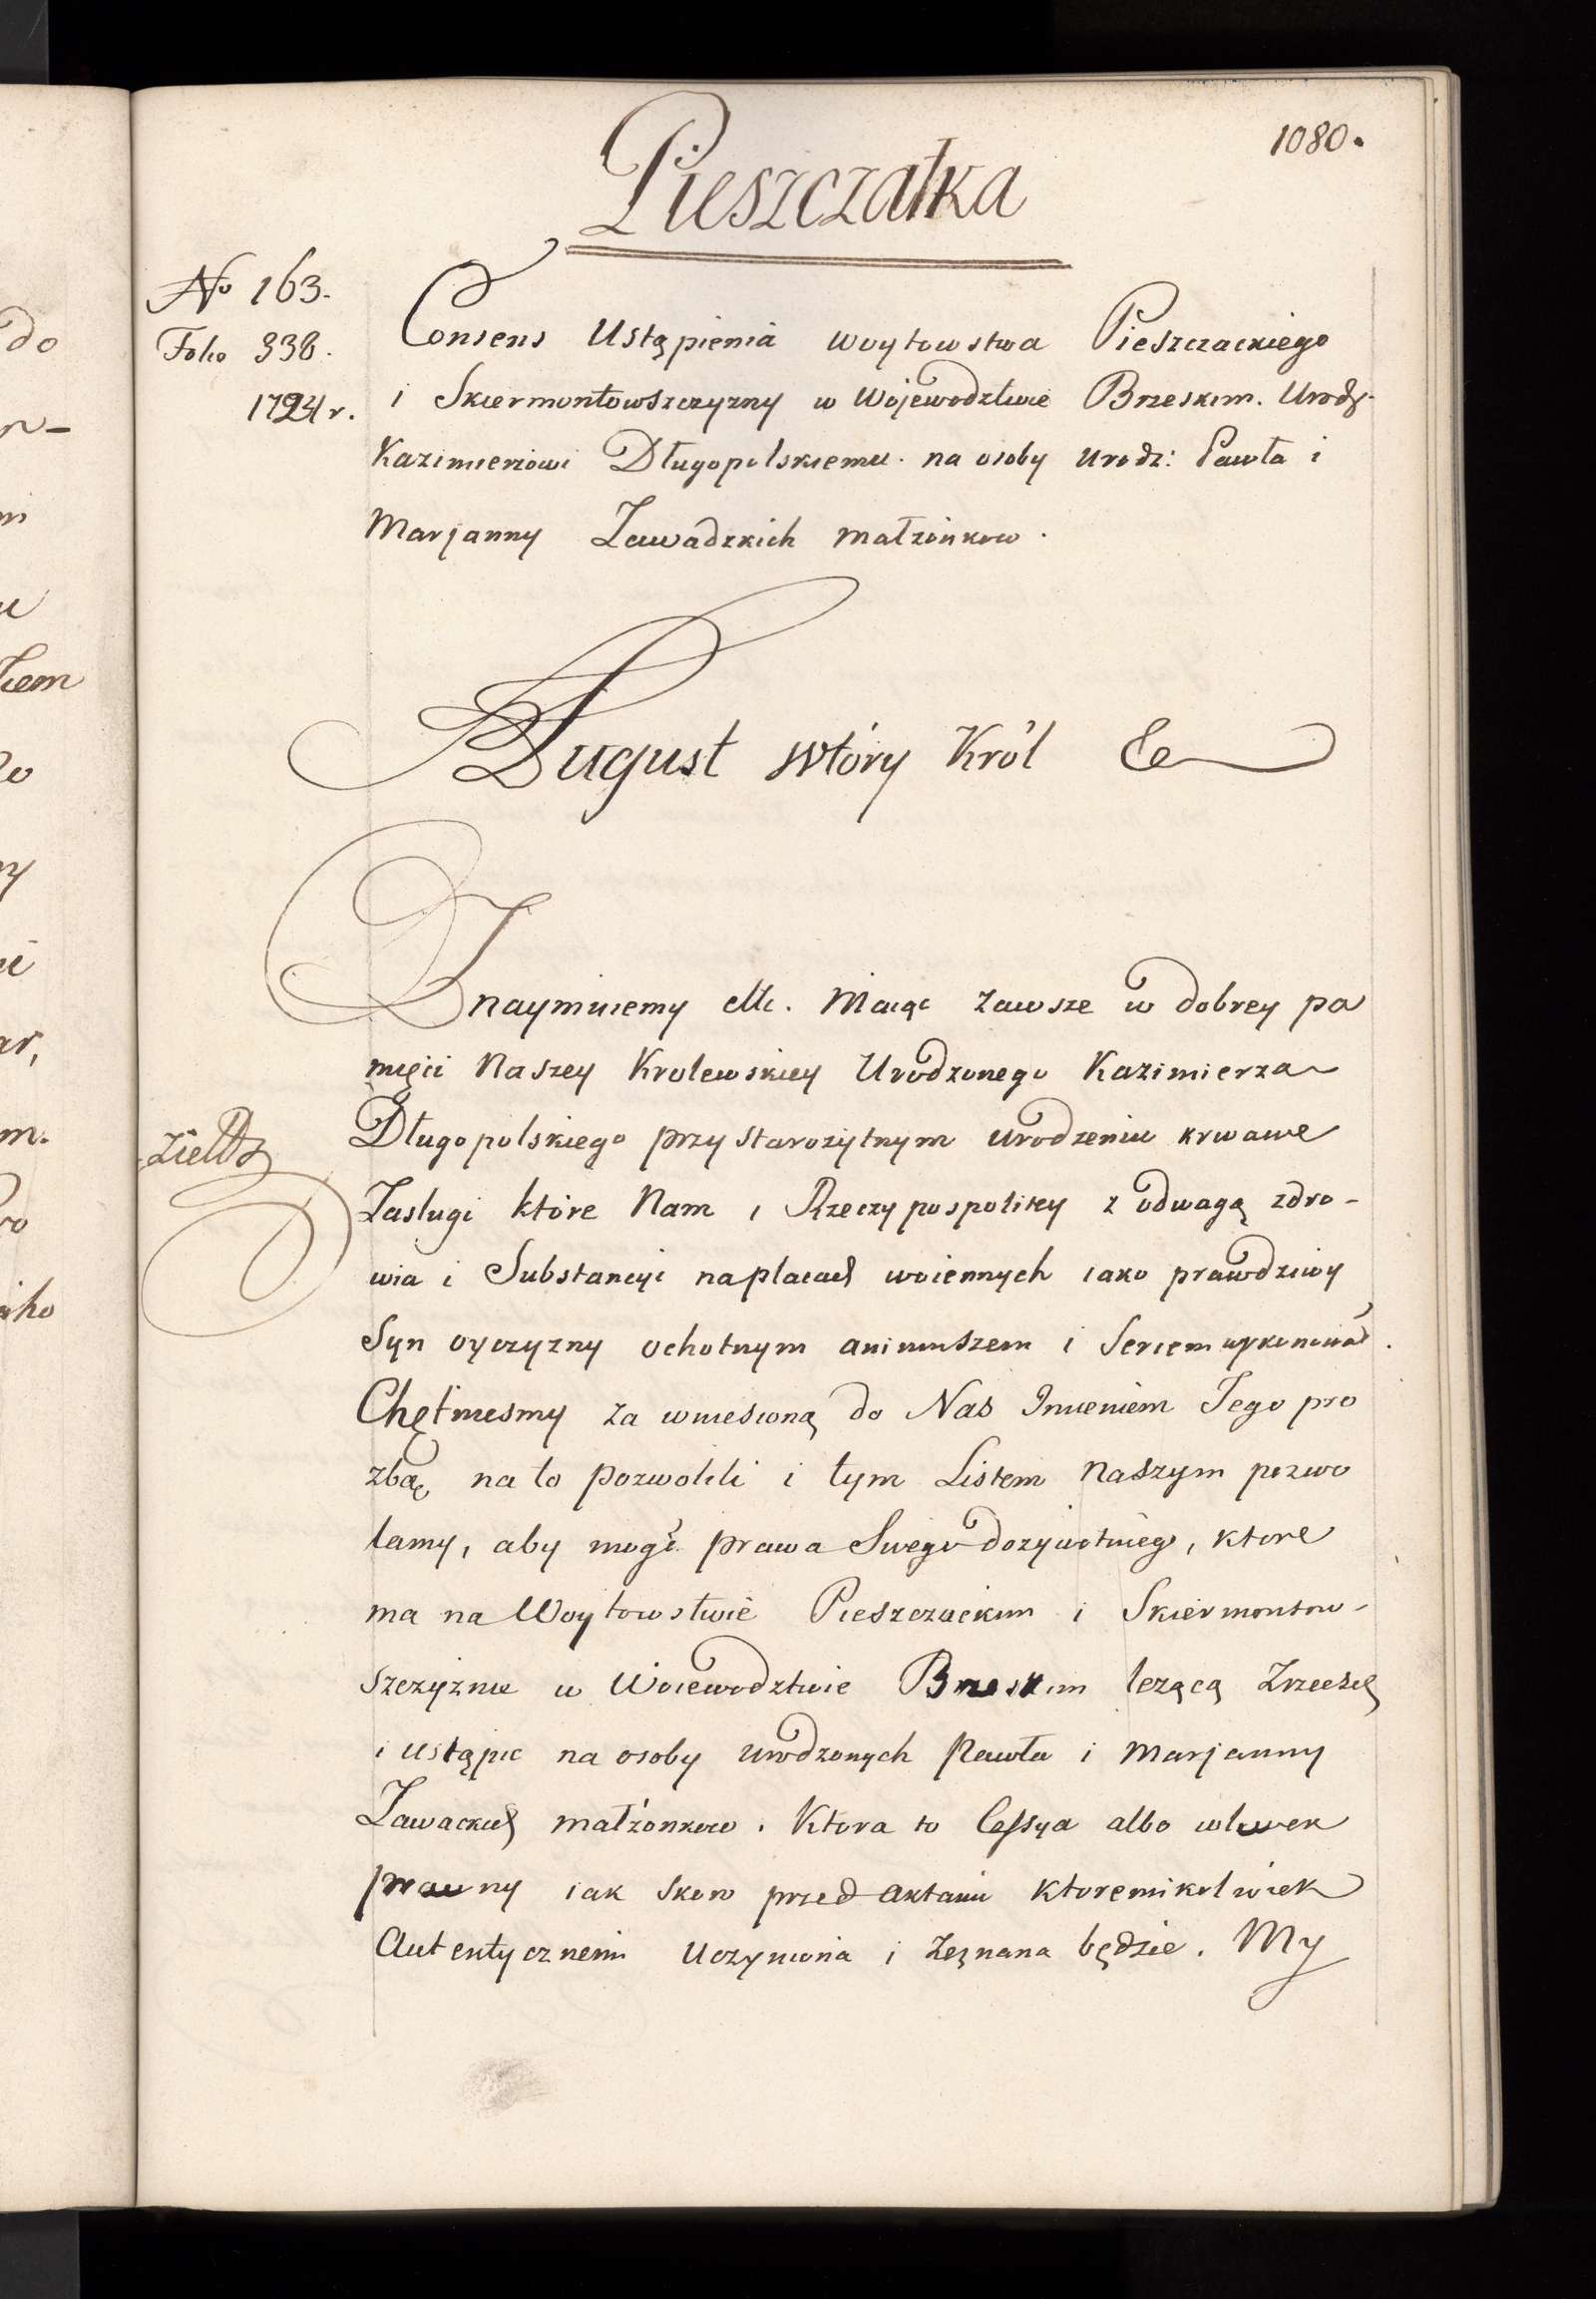 1080.
Pieszczatka
No 163.
Folio 338.
1724 r.
Consens Ustąpienia woytowstwa Pieszczackiego
i Skiermontowszczyzny w Wojewodztwie Brzeskim. Urodz.
Kazimierzowi Długopolskiemu. na osoby urodz: Pawła i
Marjanny Zawadzkich małżonkow.
August wtóry Król &c
Znaymuiemy &c. Maiąc zawsze w dobrey pa
mięci Naszey Krolewskiey Urodzonego Kazimierza
Długopolskiego przy starożytnym urodzeniu krwawe
Zaslugi które Nam i Rzeczypospolitey z odwagą zdro-
wia i Substancyi na placach woiennych iako prawdziwy
Syn oyczyzny ochotnym animuszem i Sercem wykonywał.
Chętniesmy za wniesioną do Nas Imieniem Jego pro
zbą na to pozwolili i tym Listem Naszym pozwo
lamy, aby mogł prawa Swego dożywotniego, ktore
ma na Woytowstwie Pieszczackim i Skiermontow-
szczyznie w Woiewodztwie Brzeskim leżącą Zrzec się
i ustąpic na osoby urodzonych Pawła i Marjanny
Zawackich małżonkow. Ktora to Cessya albo wlewek
prawny iak skoro przed aktami ktoremikolwiek
Autentycznemi uczyniona i zeznana będzie. My